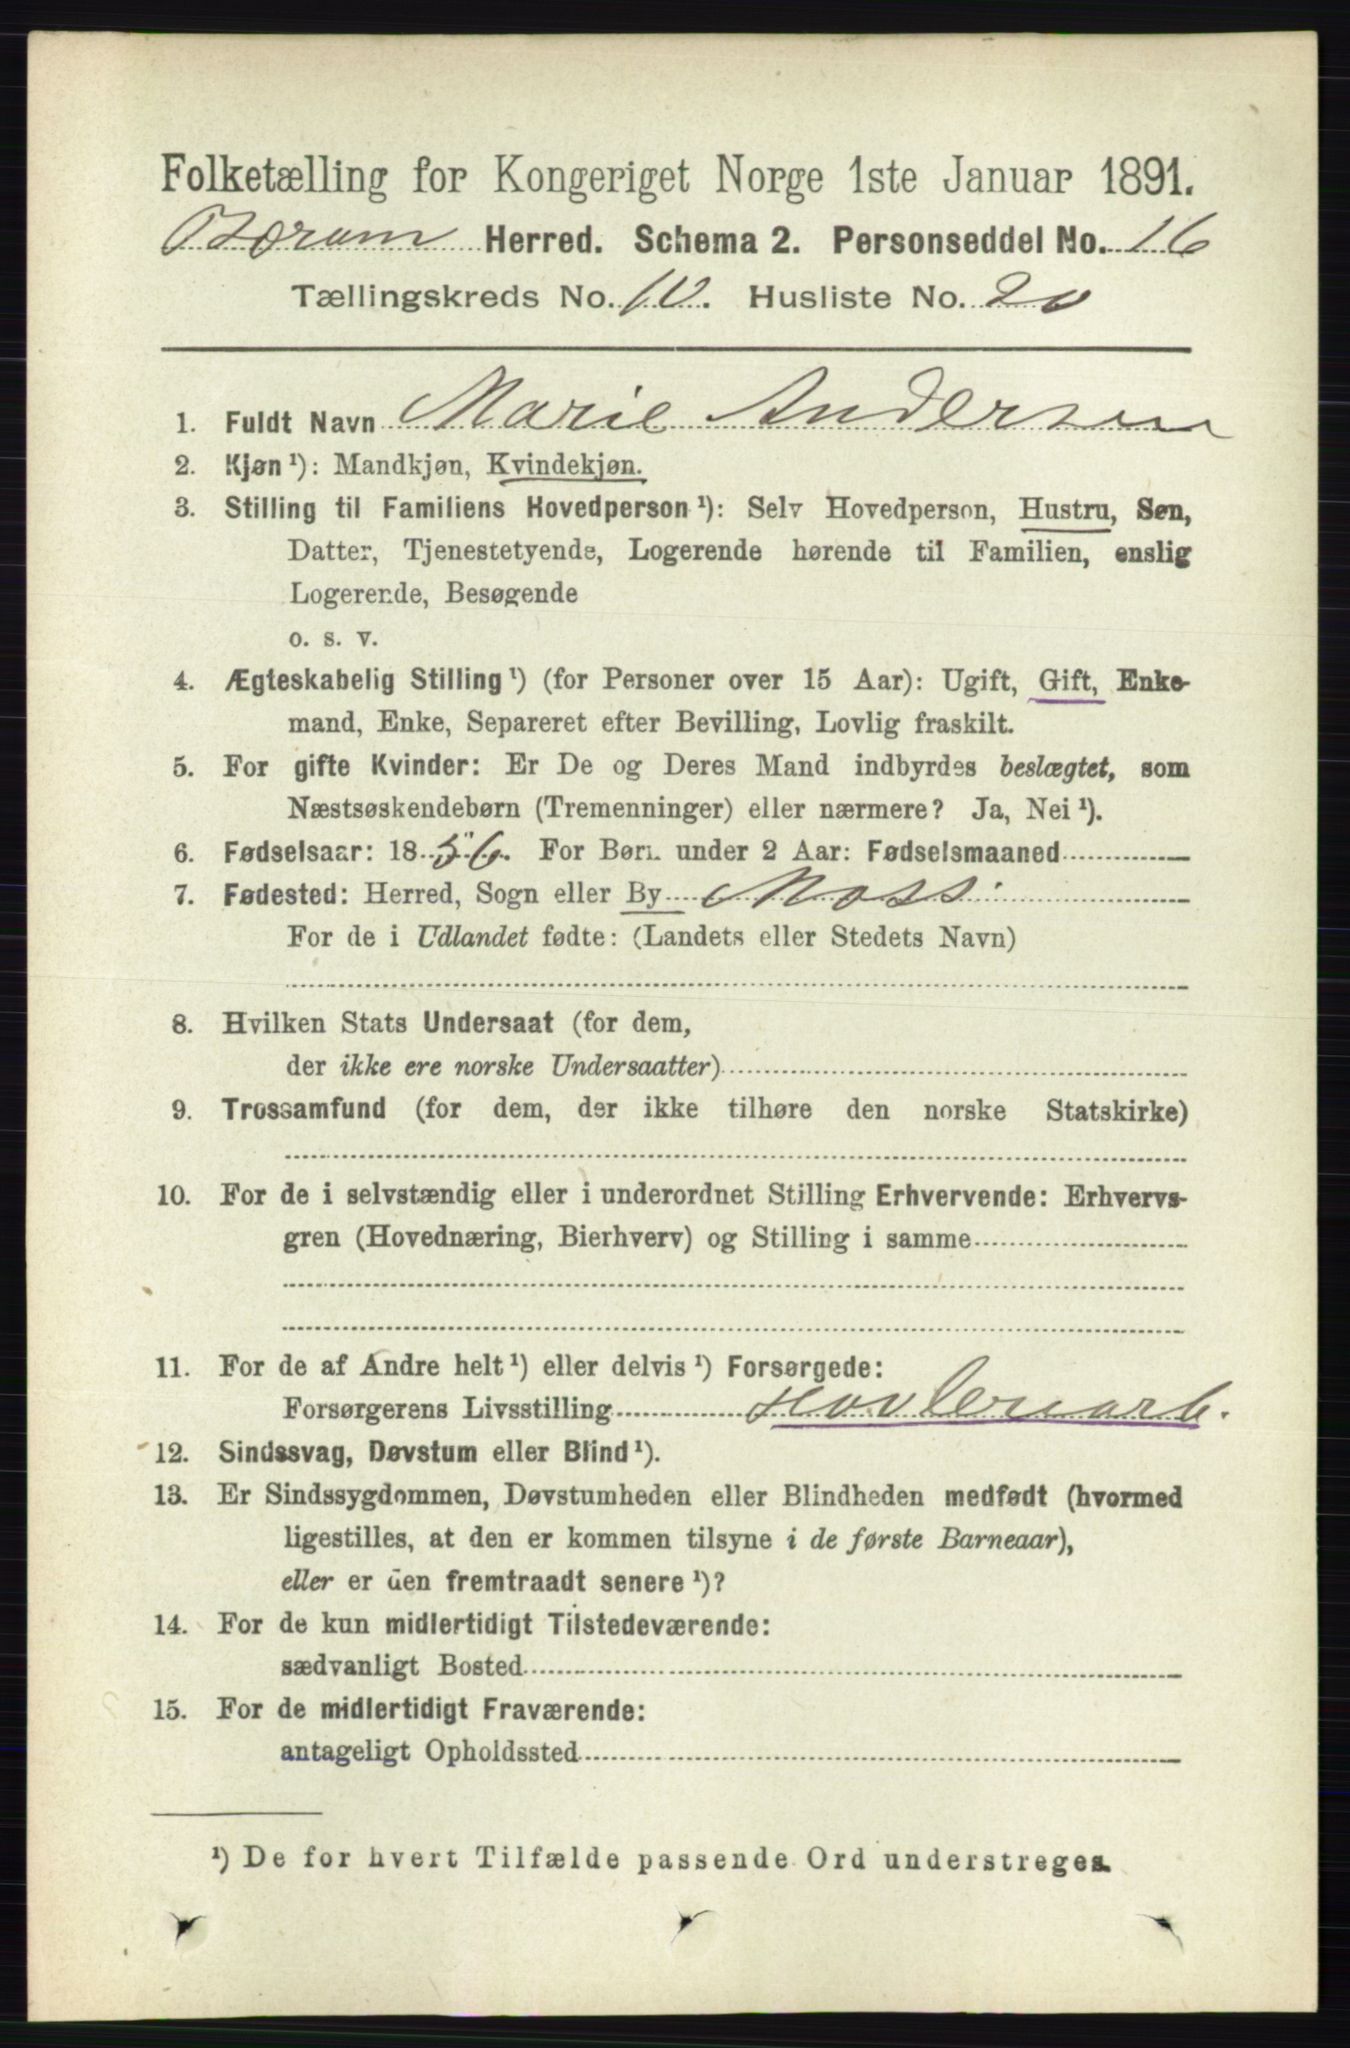 Folketælling for Kongeriget Norge 1ste Januar 1891.
Bærum Herred. Schema 2. Personseddel No. 16
Tællingskreds No. 10. Husliste No. 20
1. Fuldt Navn Marie Andersen
2. Kjøn ¹): Mandkjøn, Kvindekjøn.
3. Stilling til Familiens Hovedperson ¹): Selv Hovedperson, Hustru, Søn,
Datter, Tjenestetyende, Logerende hørende til Familien, enslig
Logerende, Besøgende
o. s. v.
4. Ægteskabelig Stilling ¹) (for Personer over 15 Aar): Ugift, Gift, Enke-
mand, Enke, Separeret efter Bevilling, Lovlig fraskilt.
5. For gifte Kvinder: Er De og Deres Mand indbyrdes beslægtet, som
Næstsøskendebørn (Tremenninger) eller nærmere? Ja, Nei ¹).
6. Fødselsaar: 1856. For Børn under 2 Aar: Fødselsmaaned
7. Fødested: Herred, Sogn eller By Moss
For de i Udlandet fødte: (Landets eller Stedets Navn)
8. Hvilken Stats Undersaat (for dem,
der ikke ere norske Undersaatter)
9. Trossamfund (for dem, der ikke tilhøre den norske Statskirke)
10. For de i selvstændig eller i underordnet Stilling Erhvervende: Erhvervs-
gren (Hovednæring, Bierhverv) og Stilling i samme
11. For de af Andre helt ¹) eller delvis ¹) Forsørgede:
Forsørgerens Livsstilling Høvleriarb.
12. Sindssvag, Døvstum eller Blind ¹).
13. Er Sindssygdommen, Døvstumheden eller Blindheden medfødt (hvormed
ligestilles, at den er kommen tilsyne i de første Barneaar),
eller er den fremtraadt senere ¹)?
14. For de kun midlertidigt Tilstedeværende:
sædvanligt Bosted
15. For de midlertidigt Fraværende:
antageligt Opholdssted
¹) De for hvert Tilfælde passende Ord understreges.